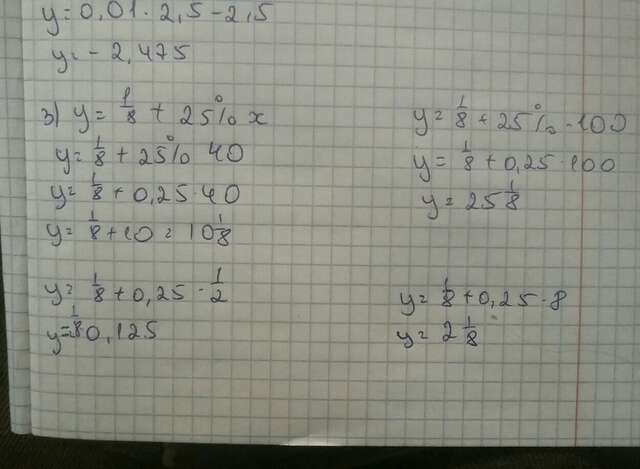 y=0,01·2,5-2,5
y=-2,475
3) y=1/8+25%x
y=1/8+25%·40
y=1/8+0,25·40
y=1/8+10=10 1/8
y=1/8+0,25·1/2
y=1/8 0,125
y=1/8+25%·100
y=1/8+0,25·100
y=25 1/8
y=1/8+0,25·8
y=2 1/8